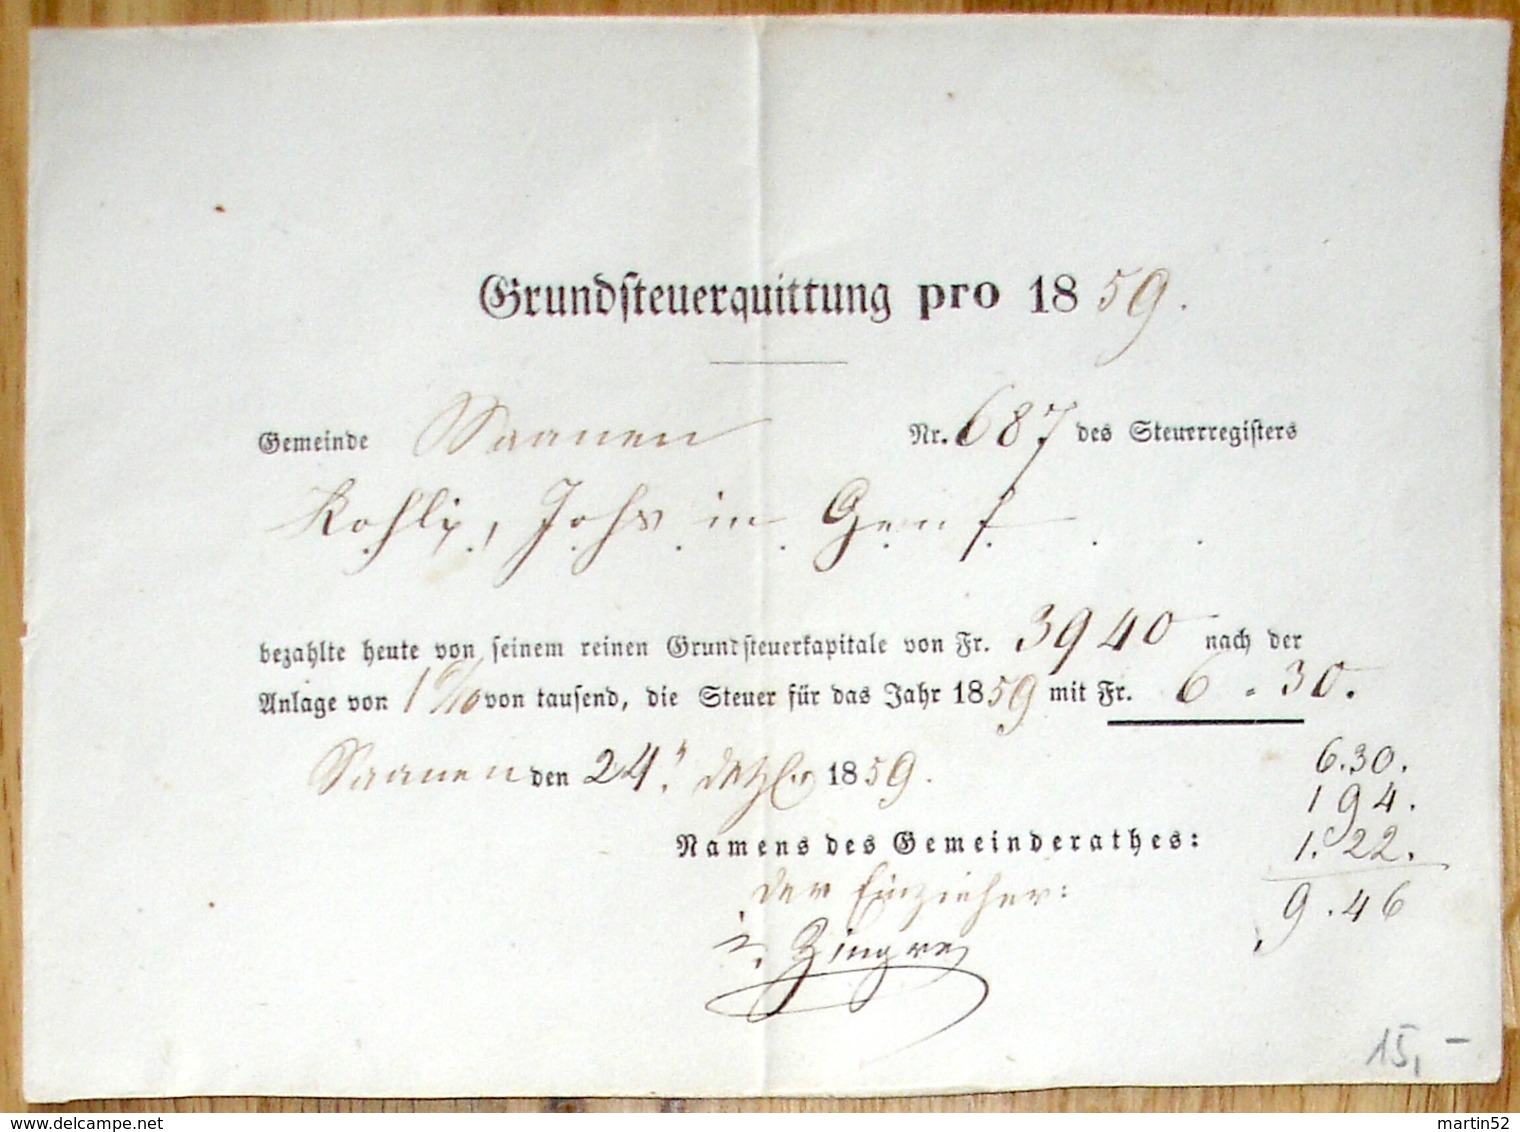 Grundsteuerquittung pro 1859.
Gemeinde Saanen Nr. 687 des Steuerregisters
Kohli, Johs in Genf
bezahlte heute von seinem reinen Grundsteuerkapitale von Fr. 3940 nach der
Anlage von 1 6/10 von tausend, die Steuer für das Jahr 1859 mit Fr. 6.30.
Saanen den 24. Dezbr 1859.
6.30.
194.
1.22.
9.46
Namens des Gemeinderathes:
der Einzieher:
Zingre
15,-
delcampe.net
martin52